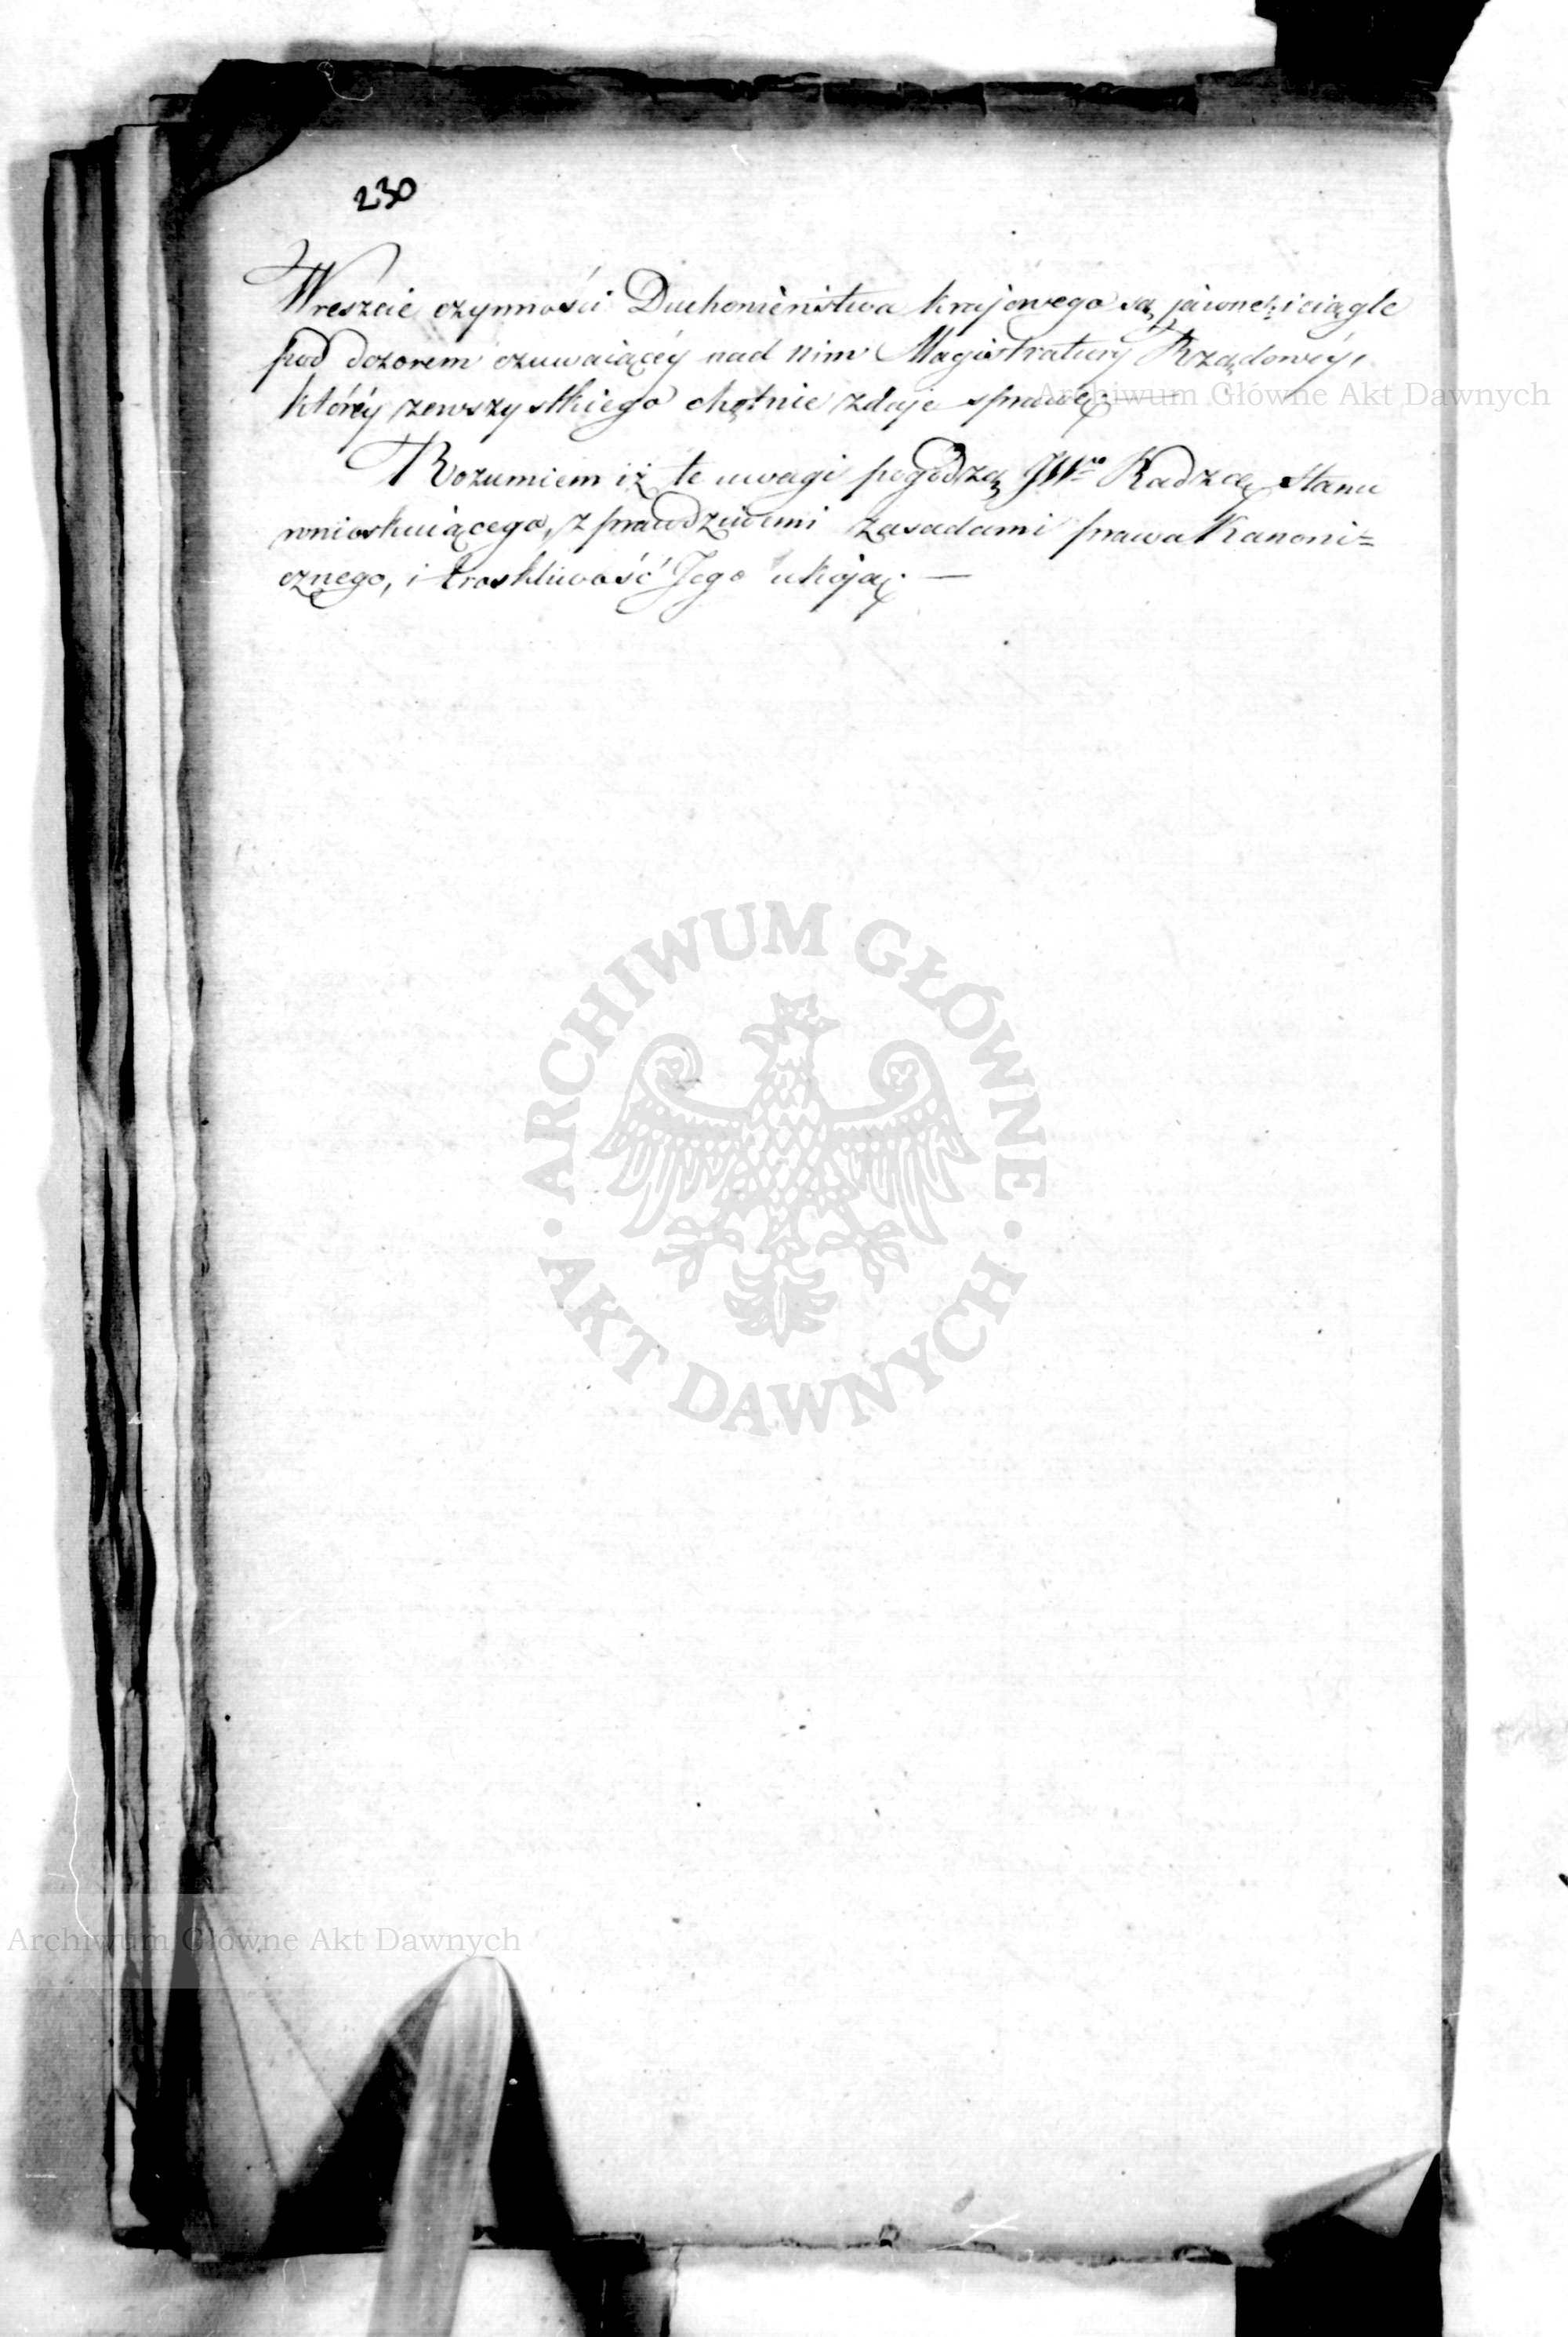 230
Wreszcie czynności Duchowieństwa krajowego są jawne, i ciągle
pod dozorem czuwaiącéy nad nim Magistratury Rządowéy,
któréy zewszystkiego chętnie zdaje sprawę. —
Rozumiem iż te uwagi pogodzą JWgo Radzcę Stanu
wnioskuiącego, z prawdziwemi zasadami prawa Kanoni=
cznego, i troskliwość Jego ukoją. —
Archiwum Główne Akt Dawnych
ARCHIWUM GŁÓWNE
· AKT DAWNYCH ·
Archiwum Główne Akt Dawnych